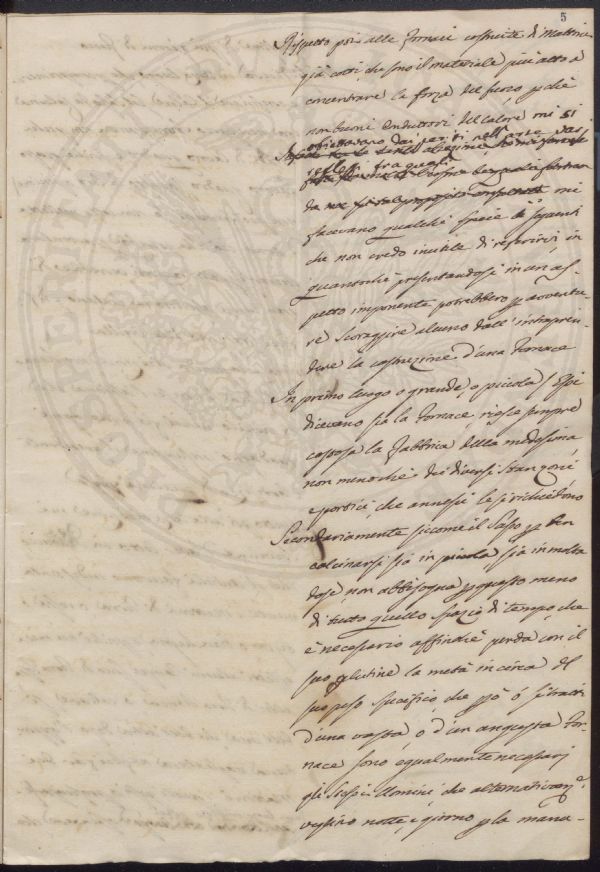 5
Rispetto poi alle Fornaci costruite di Mattoni
già cotti, che sono il materiale più atto a
concentrare la forza del fuoco, e
non buoni Conduttori del calore mi si
obiettavano dai periti nell'arte
riflessi fra quegli
da mi
facevano qualche specie i seguenti
che non credo inutile di riferirvi, in
quantochè presentandosi in un as-
petto imponente potrebbero p avventu-
ra scoraggire alcuno dall'intrapren-
dere la costruzione d'una Fornace
In primo luogo o grande, o piccola, Essi
dicevano sia la Fornace, riesce sempre
costosa la Fabbrica della medesima
non menochè dei diversi Stanzoni
e portici, che annessi le si richiedono
Secondariamente siccome il Sasso p ben
calcinarsi sia in piccola, sia in molta
dose, non abbisogna p questo meno
di tutto quello spazio di tempo, che
è necessario affinchè perda con il
suo glutine la metà in circa del
suo peso specifico, che però o si tratti
d'una vasta, o d'un angusta For-
nace sono egualmente necessarj
gli stessi Uomini che alternativam.e
vegliano notte, e giorno p la manu-